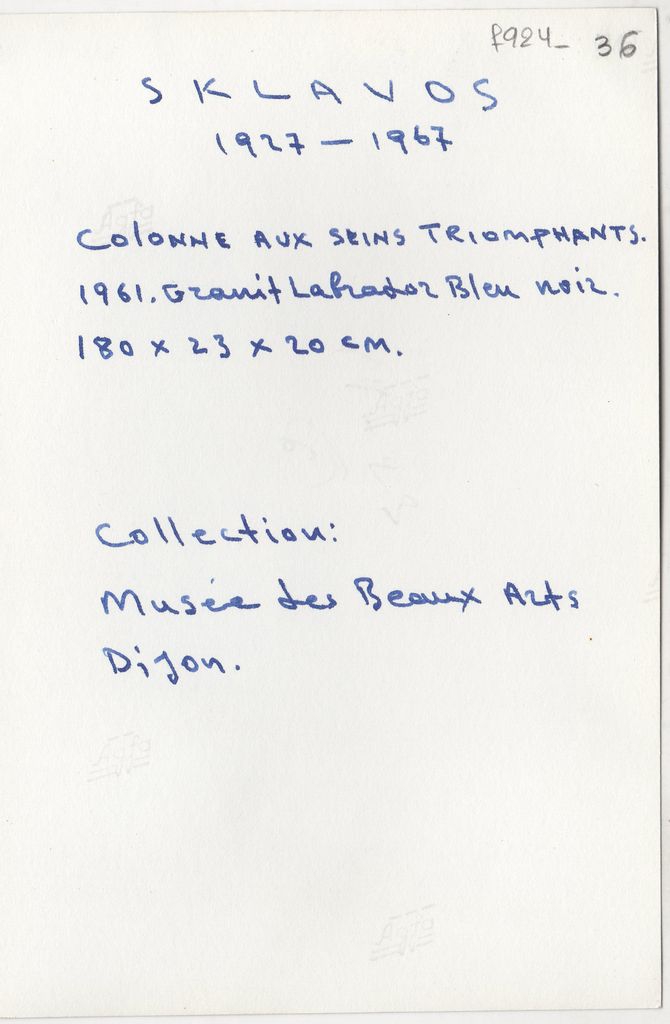 f924_ 36
SKLAVOS
1927 — 1967
COLONNE AUX SEINS TRIOMPHANTS.
1961. Granit Labrador Bleu noir.
180 x 23 x 20 cm.
Collection:
Musée des Beaux Arts
Dijon.